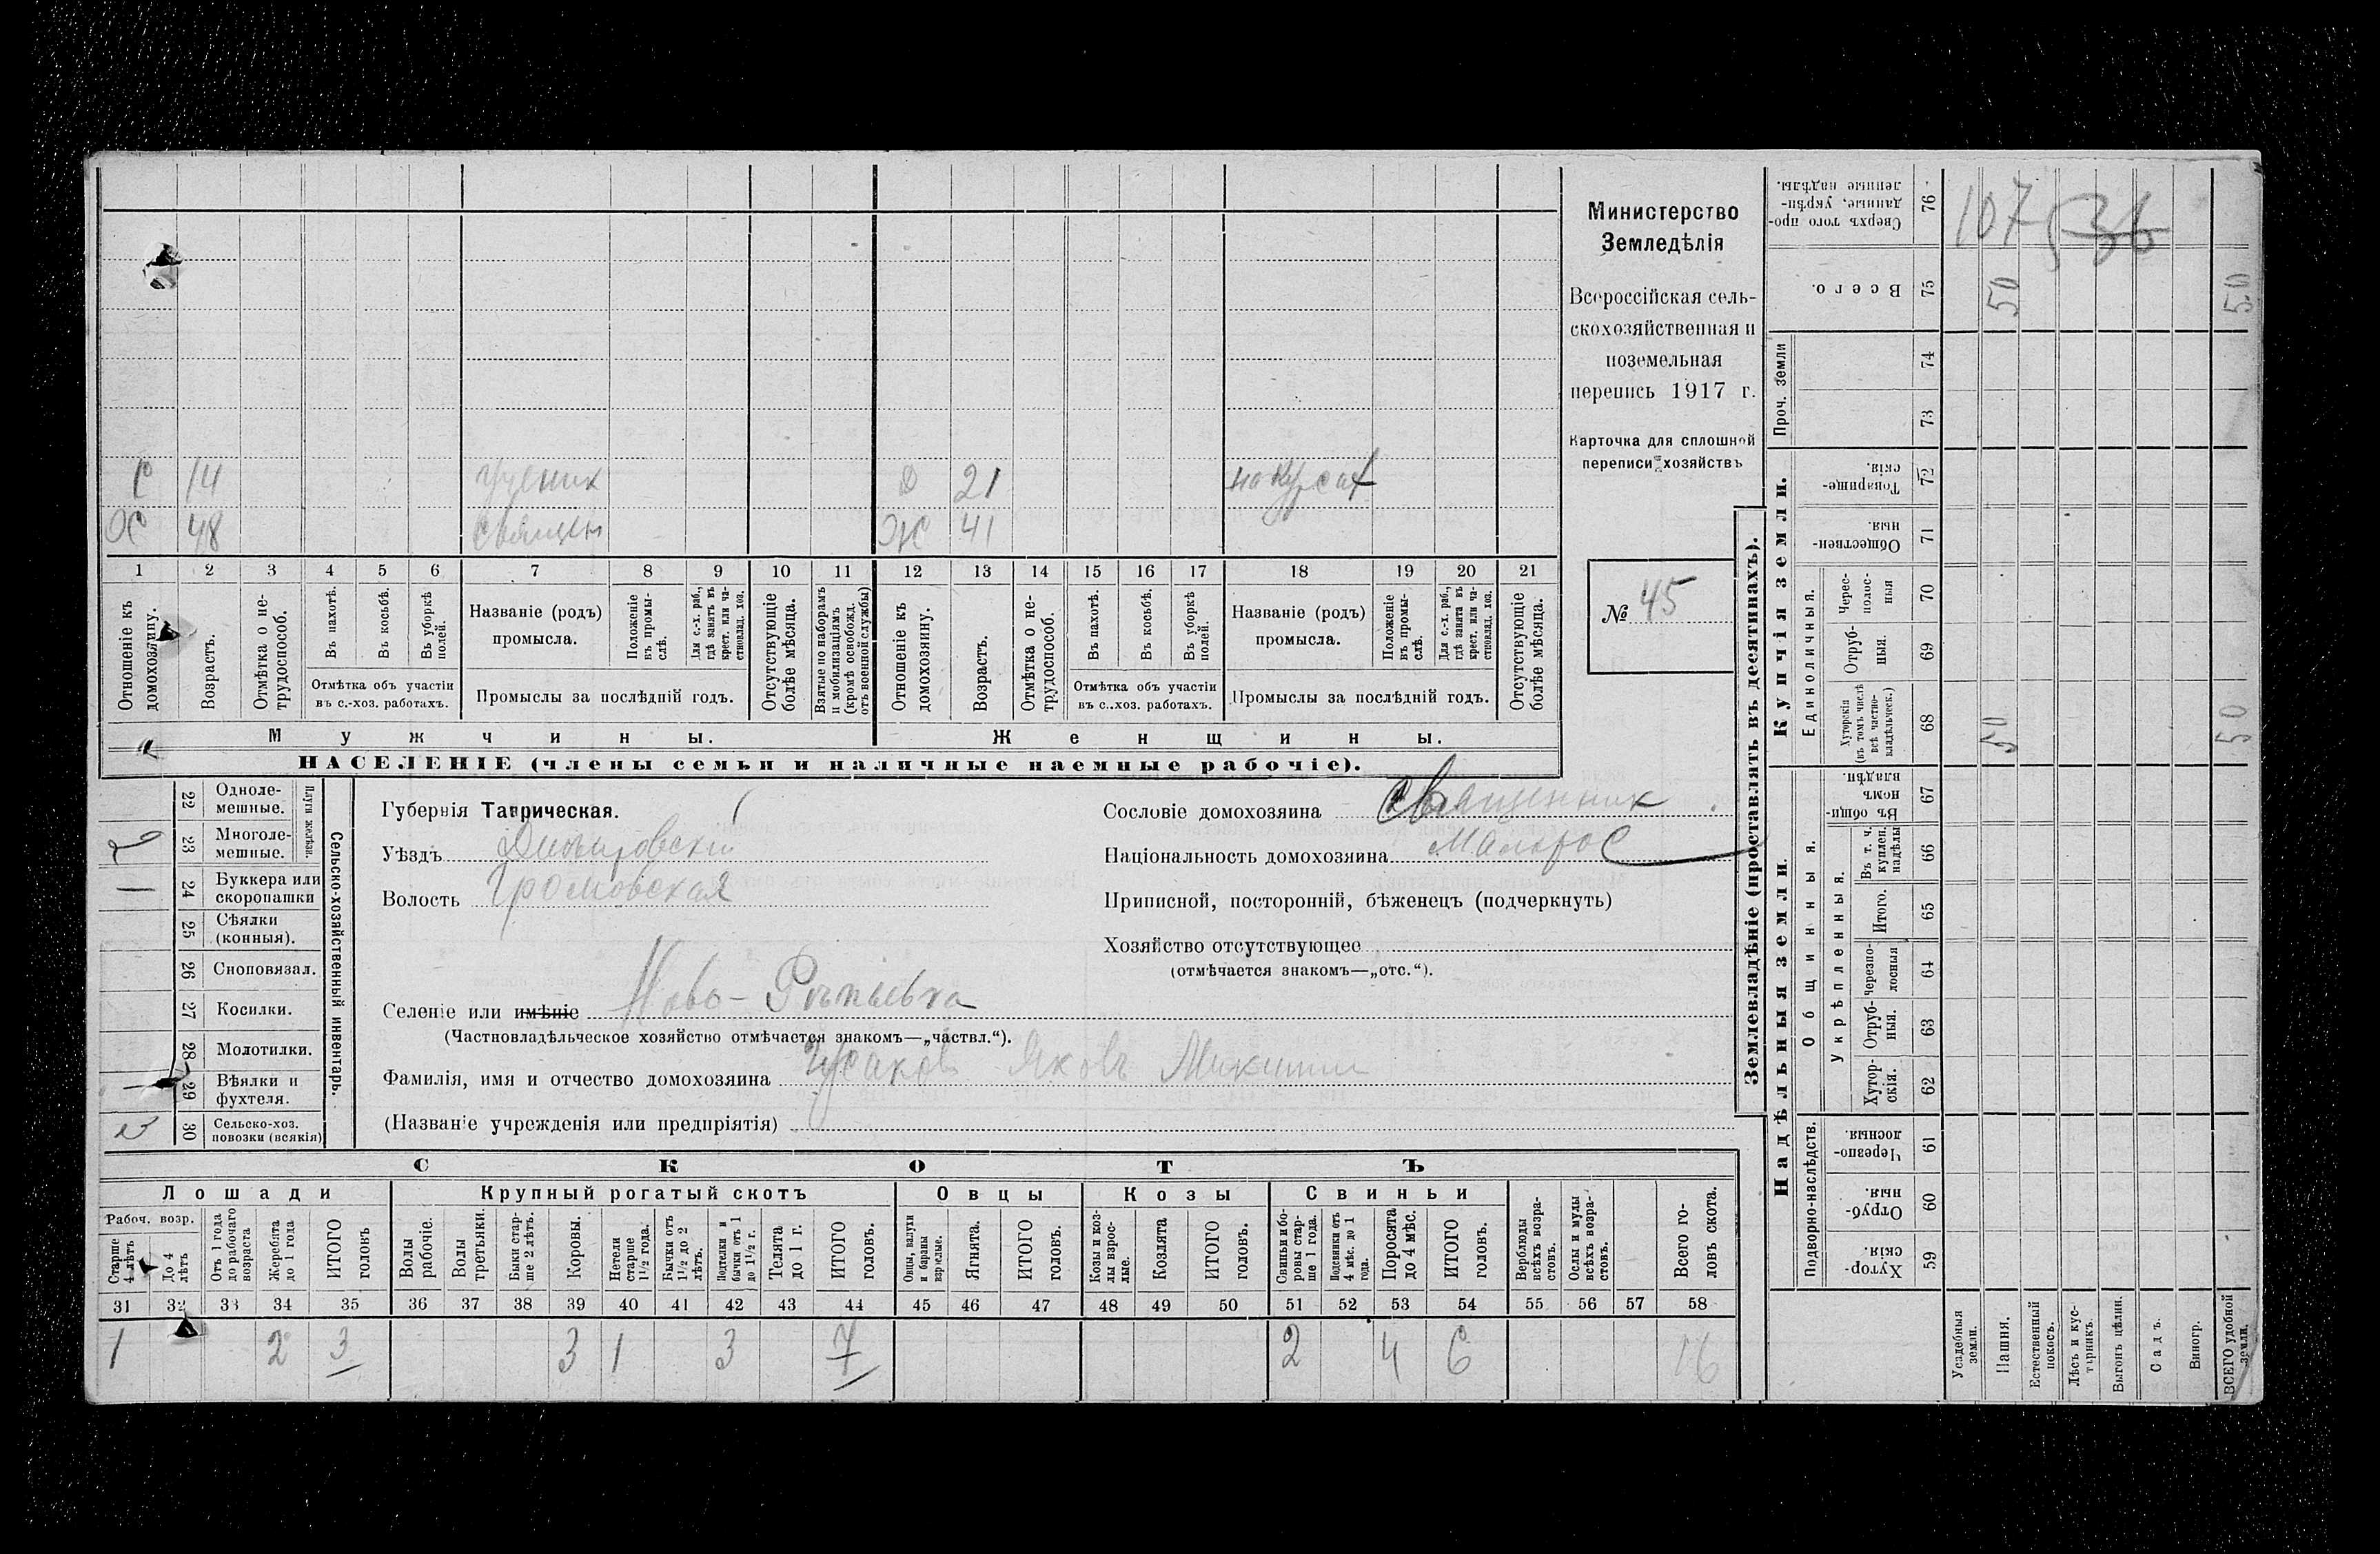 С 14 ученик Д 21 на курсах
Ж 48 Ж 41
1 2 3 4 5 6 7 8 9 10 11 12 13 14 15 16 17 18 19 20 21
Отношеніе къ домохозяину.
Возрастъ.
Отмѣтка о нетрудоспособ.
Въ пахотѣ.
Въ косьбѣ.
Въ уборкѣ полей.
Отмѣтка объ участіи
въ с.-хоз. работахъ.
Названіе (родъ)
промысла.
Положеніе въ промыслѣ.
Для с.-х. раб., гдѣ занятъ въ крест. или частновлад. хоз.
Промыслы за послѣдній годъ.
Отсутствующіе болѣе мѣсяца.
Взятые по наборамъ и мобилизаціямъ (кромѣ освобожд. отъ военной службы)
Отношеніе къ домохозяину.
Возрастъ.
Отмѣтка о нетрудоспособ.
Въ пахотѣ.
Въ косьбѣ.
Въ уборкѣ полей.
Отмѣтка объ участіи
въ с.-хоз. работахъ.
Названіе (родъ)
промысла.
Положеніе въ промыслѣ.
Для с.-х. раб., гдѣ занята въ крест. или частновлад. хоз.
Промыслы за послѣдній годъ.
Отсутствующіе болѣе мѣсяца.
Мужчины. Женщины.
НАСЕЛЕНІЕ (члены семьи и наличные наемные рабочіе).
Министерство
Земледѣлія
Всероссійская сель-
скохозяйственная и
поземельная
перепись 1917 г.
Карточка для сплошной
переписи хозяйствъ
№ 45
22 Однолемешные.
23 Многолемешные. 2
Плуги желѣзн.
24 Буккера или скоропашки 1
25 Сѣялки (конныя).
26 Сноповязал.
27 Косилки.
28 Молотилки.
29 Вѣялки и фухтеля. 1
30 Сельско-хоз. повозки (всякія)
Сельско-хозяйственный инвентарь.
Губернія Таврическая.
Уѣздъ Днѣпровскій
Волость Громовская
Сословіе домохозяина Священник
Національность домохозяина Малорос
Приписной, посторонній, бѣженецъ (подчеркнуть)
Хозяйство отсутствующее
(отмѣчается знакомъ—„отс.“).
Селеніе или имѣніе Ново-
(Частновладѣльческое хозяйство отмѣчается знакомъ—„частвл.“).
Фамилія, имя и отчество домохозяина Яковъ
(Названіе учрежденія или предпріятія)
СКОТЪ
Лошади Крупный рогатый скотъ Овцы Козы Свиньи
Рабоч. возр.
Старше 4 лѣтъ
До 4 лѣтъ
Отъ 1 года до рабочаго возраста
Жеребята до 1 года
ИТОГО головъ
Волы рабочіе.
Волы третьяки.
Быки старше 2 лѣтъ.
Коровы.
Нетели старше 1½ года.
Бычки отъ 1½ до 2 лѣтъ.
Подтелки и бычки отъ 1 до 1½ г.
Телята до 1 г.
ИТОГО головъ.
Овцы, валухи и бараны взрослые.
Ягнята.
ИТОГО головъ.
Козы и козлы взрослые.
Козлята
ИТОГО головъ.
Свиньи и боровы старше 1 года.
Подсвинки отъ 4 мѣс. до 1 года.
Поросята до 4 мѣс.
ИТОГО головъ.
Верблюды всѣхъ возрастовъ.
Ослы и мулы всѣхъ возрастовъ.
Всего головъ скота.
31 32 33 34 35 36 37 38 39 40 41 42 43 44 45 46 47 48 49 50 51 52 53 54 55 56 57 58
1 2 3 3 1 3 7 2 4 6 16
Землевладѣніе (проставлять въ десятинахъ).
Надѣльныя земли. Купчія земли. Проч. земли
Подворно-наслѣдств.
Общинныя.
Укрѣпленныя.
Единоличныя.
Хуторскія. 59
Отрубныя. 60
Черезполосныя. 61
Хуторскія. 62
Отрубныя. 63
Черезполосныя 64
Итого. 65
Въ т. ч. куплен. надѣлы 66
Въ общинномъ владѣн. 67
Хуторскія (въ томъ числѣ всѣ частновладѣльческ.) 68
Отрубныя. 69
Чересполосныя 70
Общественныя. 71
Товарищескія. 72
73
74
Всего. 75
Сверхъ того проданные, укрѣпленные надѣлы. 76
107 536
50 50
50 50
Усадебныя земли.
Пашня.
Естественный покосъ.
Лѣсъ и кустарникъ.
Выгонъ цѣлин.
Садъ.
Виногр.
ВСЕГО удобной земли.